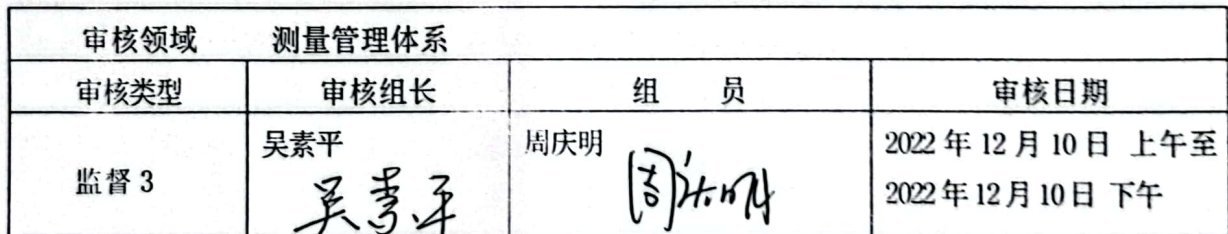 审核领域 测量管理体系
审核类型 审核组长 组 员 审核日期
监督 3
吴素平
吴素平
周庆明
周庆明
2022 年 12 月 10 日 上午至
2022 年 12 月 10 日 下午